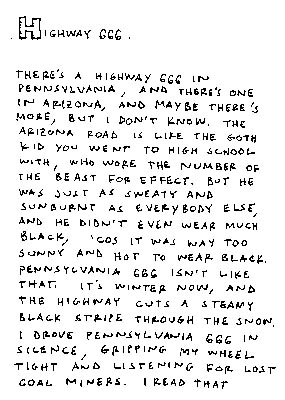 HIGHWAY 666.
THERE'S A HIGHWAY 666 IN
PENNSYLVANIA, AND THERE'S ONE
IN ARIZONA, AND MAYBE THERE'S
MORE, BUT I DON'T KNOW. THE
ARIZONA ROAD IS LIKE THE GOTH
KID YOU WENT TO HIGH SCHOOL
WITH, WHO WORE THE NUMBER OF
THE BEAST FOR EFFECT. BUT HE
WAS JUST AS SWEATY AND
SUNBURNT AS EVERYBODY ELSE,
AND HE DIDN'T EVEN WEAR MUCH
BLACK, 'COS IT WAS WAY TOO
SUNNY AND HOT TO WEAR BLACK.
PENNSYLVANIA 666 ISN'T LIKE
THAT. IT'S WINTER NOW, AND
THE HIGHWAY CUTS A STEAMY
BLACK STRIPE THROUGH THE SNOW.
I DROVE PENNSYLVANIA 666 IN
SILENCE, GRIPPING MY WHEEL
TIGHT AND LISTENING FOR LOST
COAL MINERS. I READ THAT